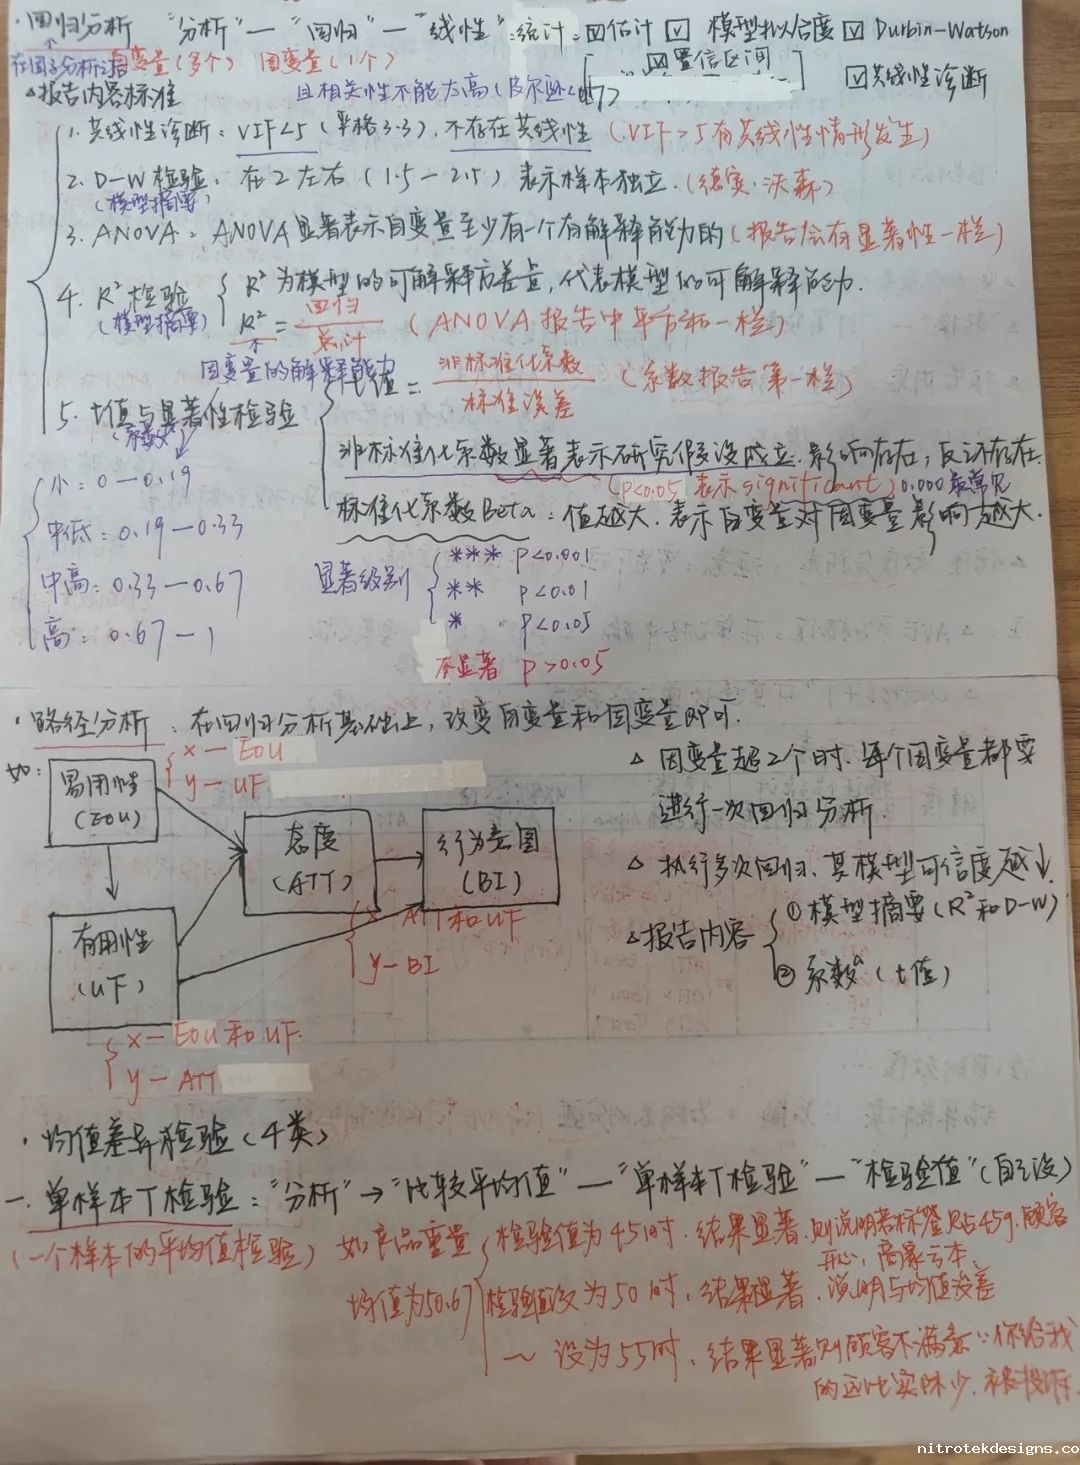 ·回归分析 "分析"—"回归"—"线性":统计:☑估计 ☑ 模型拟合度 ☑ Durbin-Watson
☑置信区间
在因子分析之后 自变量(多个) 因变量(1个)
☑共线性诊断
△报告内容标准 且相关性不能太高(皮尔逊<0.7)
1. 共线性诊断:VIF<5(严格3.3),不存在共线性(VIF>5有共线性情形发生)
2. D-W检验:在2左右(1.5—2.5)表示样本独立.(德宾.沃森)
(模型摘要)
3. ANOVA:ANOVA显著表示自变量至少有一个有解释能力的(报告会有显著性一栏)
4. R²检验 R²为模型的可解释方差量,代表模型的可解释能力.
(模型摘要) R²=回归/总计 (ANOVA报告中平方和一栏)
因变量的解释能力
5. t值与显著性检验 t值=非标准化系数/标准误差 (系数报告第一栏)
(系数)
非标准化系数显著表示研究假设成立.影响存在;反之不存在.
(P<0.05 表示significant)0.000最常见
标准化系数Beta:值越大.表示自变量对因变量影响越大.
小:0—0.19
中低:0.19—0.33
中高:0.33—0.67
高:0.67—1
显著级别
*** P<0.001
** P<0.01
* P<0.05
不显著 P>0.05
·路径分析:在回归分析基础上,改变自变量和因变量即可.
如:
易用性
(EOU)
x—EOU
y—UF
态度
(ATT)
行为意图
(BI)
有用性
(UF)
x—ATT和UF
y—BI
x—EOU和UF.
y—ATT
△因变量超2个时.每个因变量都要
进行一次回归分析.
△执行多次回归、其模型可信度越↓.
△报告内容
①模型摘要(R²和D-W)
②系数(t值)
·均值差异检验(4类)
一.单样本T检验:"分析"→"比较平均值"—"单样本T检验"—"检验值"(自己设)
(一个样本的平均值检验) 如产品重量
均值为50.67
检验值为45时.结果显著.则说明若标签贴45g.顾客
开心,商家亏本.
检验值改为50时,结果显著.说明与均值没差
~ 设为55时,结果显著则顾客不满意∵你给我
的远比实际少.被投诉.
nitrotekdesigns.co